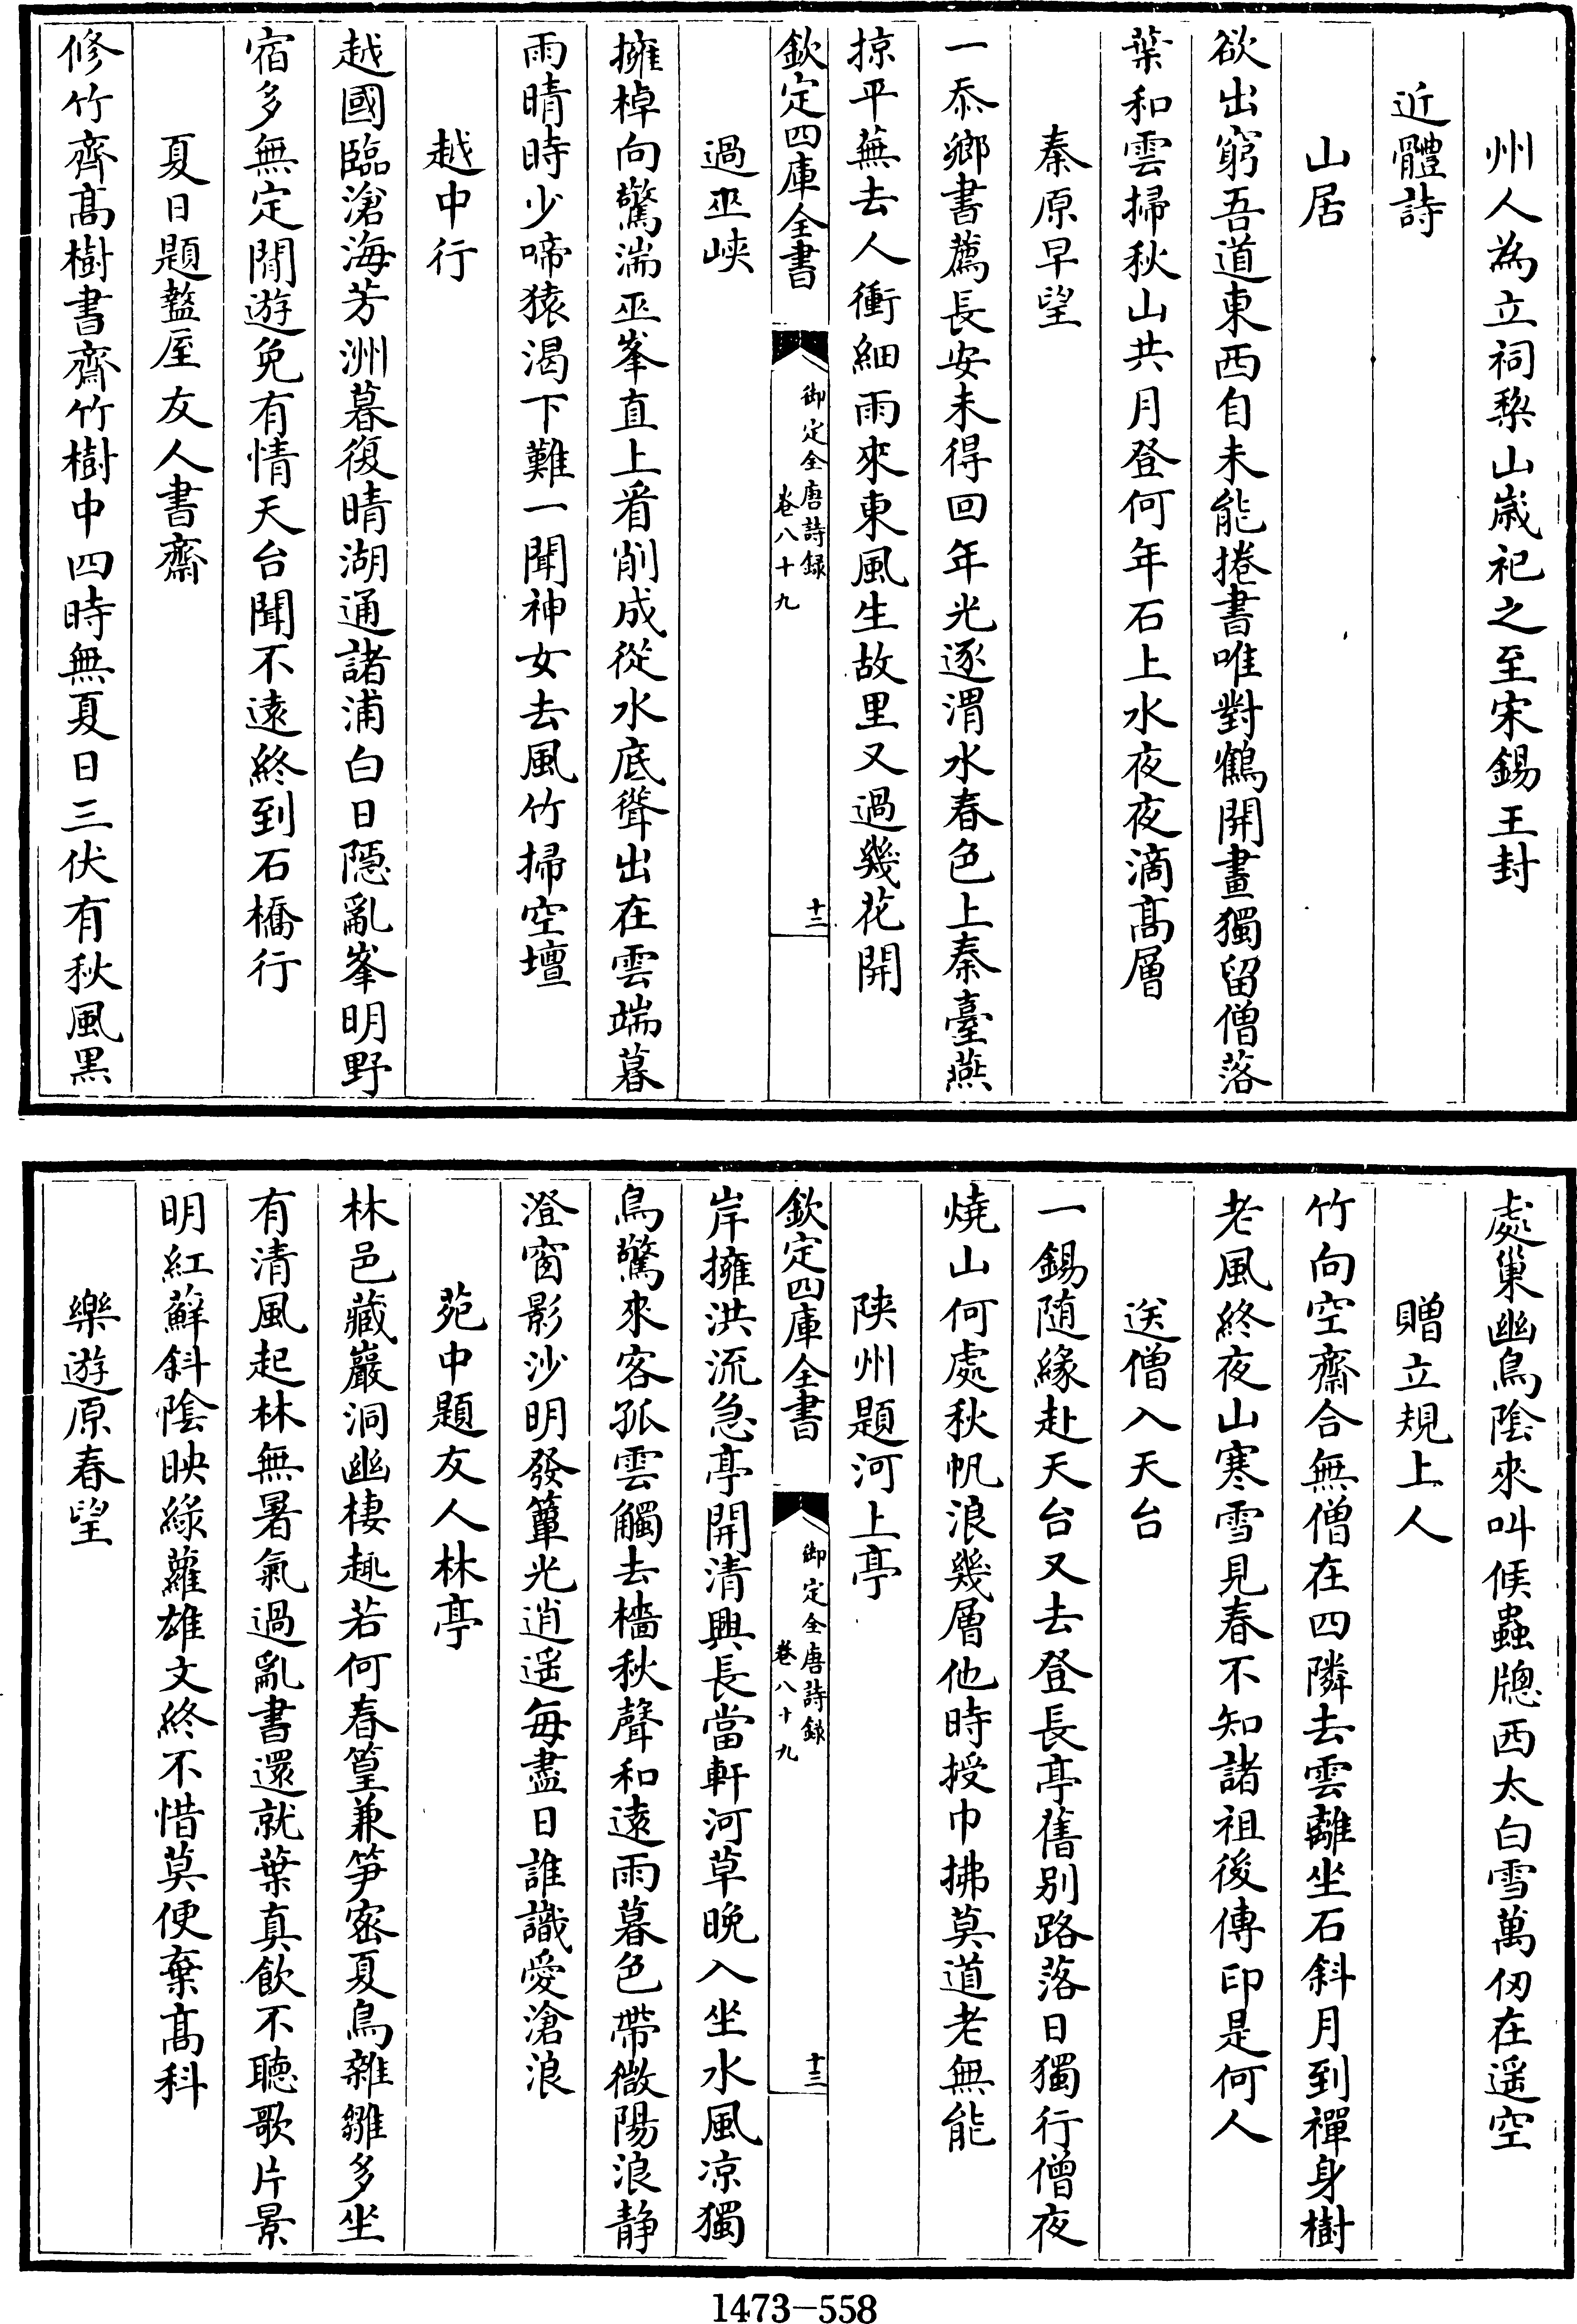 州人為立祠棃山歳祀之至宋錫王封
近體詩
山居
欲出窮吾道東西自未能捲書唯對鶴開畫獨留僧落
葉和雲掃秋山共月登何年石上水夜夜滴髙層
秦原早望
一忝鄉書薦長安未得回年光逐渭水春色上秦臺燕
掠平蕪去人衝細雨來東風生故里又過幾花開
欽定四庫全書
御定全唐詩録
卷八十九
十二
過巫峽
擁棹向驚湍巫峯直上看削成從水底聳出在雲端暮
雨晴時少啼猿渴下難一聞神女去風竹掃空壇
越中行
越國臨滄海芳洲暮復晴湖通諸浦白日隱亂峯明野
宿多無定閒遊免有情天台聞不遠終到石橋行
夏日題盩厔友人書齋
修竹齊髙樹書齋竹樹中四時無夏日三伏有秋風黑
處巢幽鳥陰來叫候蟲牕西太白雪萬仭在遥空
贈立規上人
竹向空齋合無僧在四隣去雲離坐石斜月到禪身樹
老風終夜山寒雪見春不知諸祖後傳印是何人
送僧入天台
一錫随緣赴天台又去登長亭舊别路落日獨行僧夜
燒山何處秋帆浪幾層他時授巾拂莫道老無能
陕州題河上亭
欽定四庫全書
御定全唐詩録
卷八十九
十三
岸擁洪流急亭開清興長當軒河草晚入坐水風凉獨
鳥驚來客孤雲觸去檣秋聲和遠雨暮色帶微陽浪静
澄窗影沙明發簟光逍遥每盡日誰識愛滄浪
苑中題友人林亭
林邑藏巖洞幽棲趣若何春篁兼笋宻夏鳥雜雛多坐
有清風起林無暑氣過亂書還就葉真飲不聽歌片景
明紅蘚斜陰映綠蘿雄文終不惜莫便棄髙科
樂遊原春望
1473－558